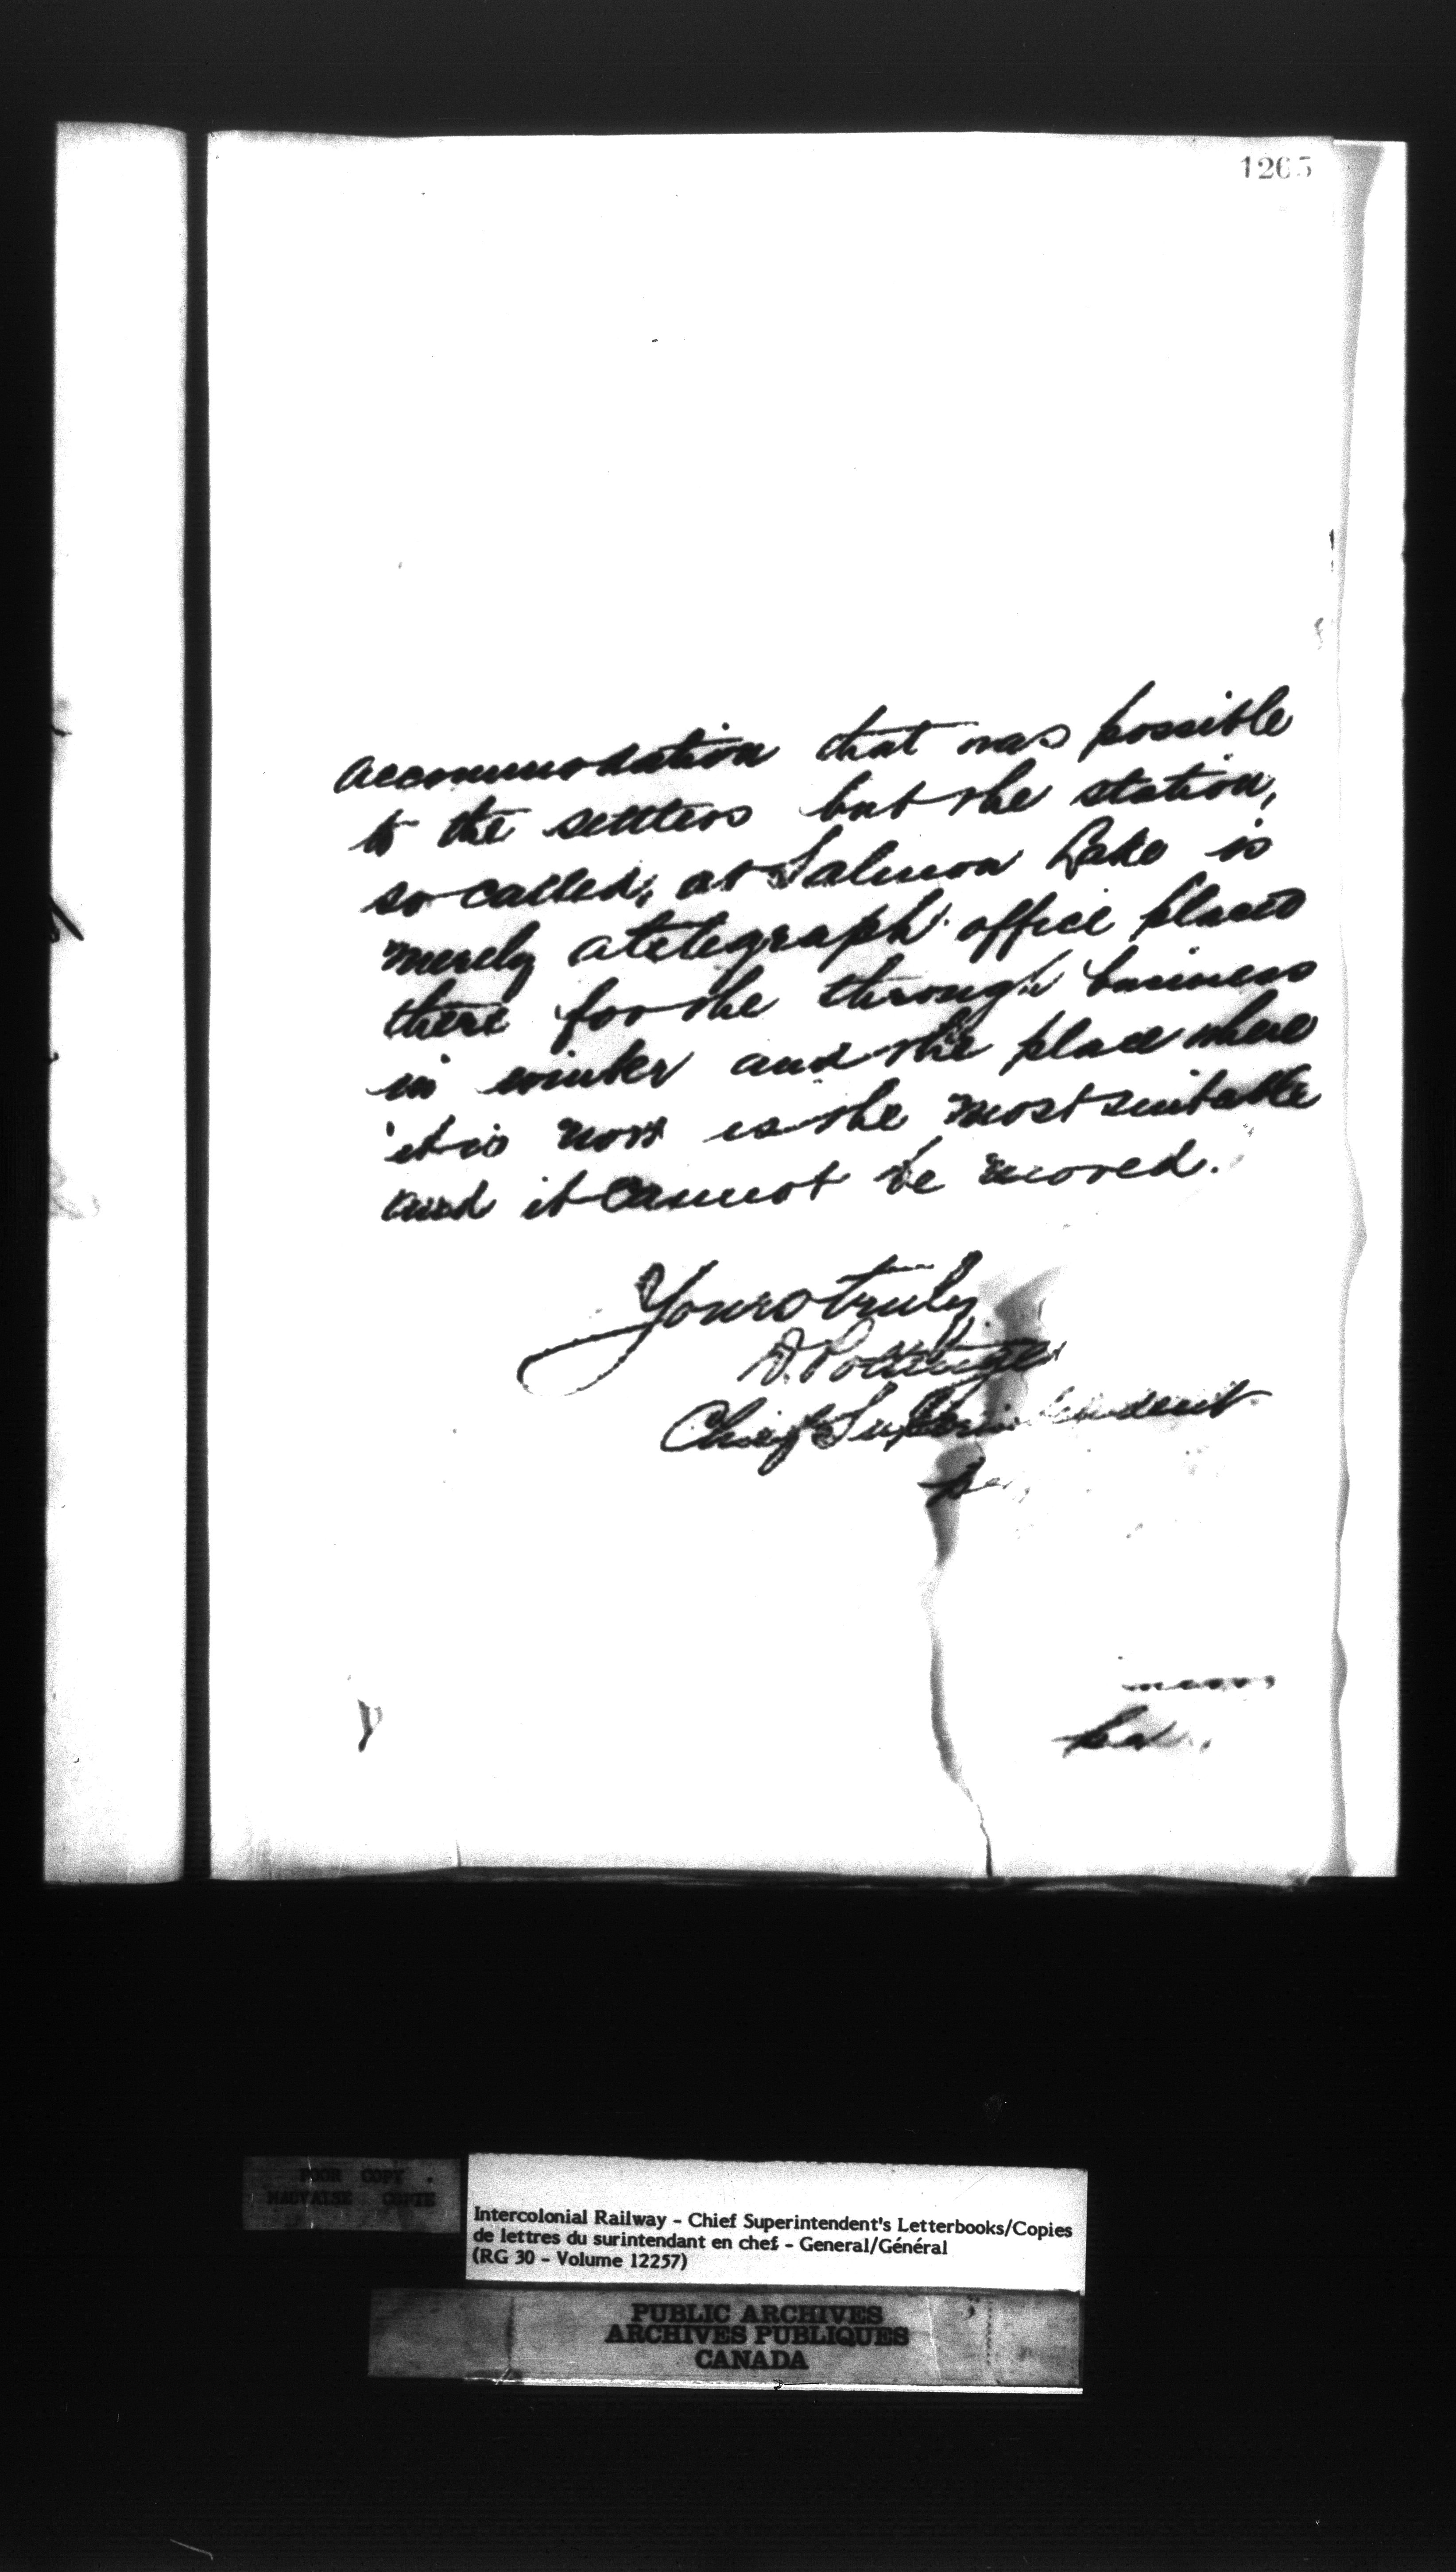 1265
accommodation that was possible
to the settlers but the station,
so called, at Salmon Lake is
merely a telegraph office placed
there for the through business
in winter and the place where
it is now is the most suitable
and it cannot be moved.
Yours truly
D. Pottinger
Chief Superintendent
POOR COPY
MAUVAISE COPIE
Intercolonial Railway - Chief Superintendent's Letterbooks/Copies
de lettres du surintendant en chef - General/Général
(RG 30 - Volume 12257)
PUBLIC ARCHIVES
ARCHIVES PUBLIQUES
CANADA